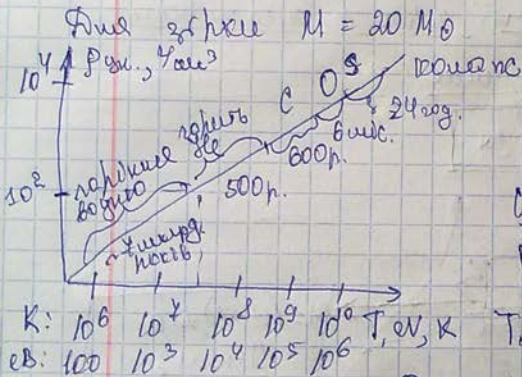 Для зірки M = 20 M⊙
10⁴
колапс
C O S
24 год.
6 міс.
600 р.
горить He
500 р.
горіння водню
10²
років
К: 10⁶ 10⁷ 10⁸ 10⁹ 10¹⁰ T, eV, K
еВ: 100 10³ 10⁴ 10⁵ 10⁶